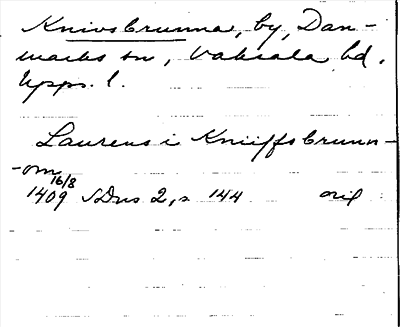 Knivsbrunna, by, Dan-
marks sn, Vaksala hd,
Upps. l.
Laurens i Kniiffsbrunn-
-om
16/8
1409 SDns 2, s 144 orig